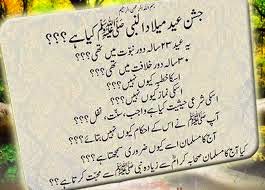 بسم اللہ الرحمن الرحیم
جشن عید میلاد النبی ﷺ کیا ہے؟؟؟
یہ عید ۲۳ سالہ دور نبوّت میں تھی؟؟؟
۳۰ سالہ دور خلافت میں تھی؟؟؟
اسکا خطبہ کیوں نہیں؟؟؟
اسکی نماز کیوں نہیں؟؟؟
اسکی شرعی حیثیت کیا ہے واجب، سنّت، نفل؟؟؟
آپ ﷺ نے اس کے احکام کیوں نہیں بتائے؟؟؟
آج کا مسلمان اسے کیوں ضروری سمجھتا ہے؟؟؟
کیا آج کا مسلمان صحابہ کرامؓ سے زیادہ نبی ﷺ سے محبّت کرتا ہے؟؟